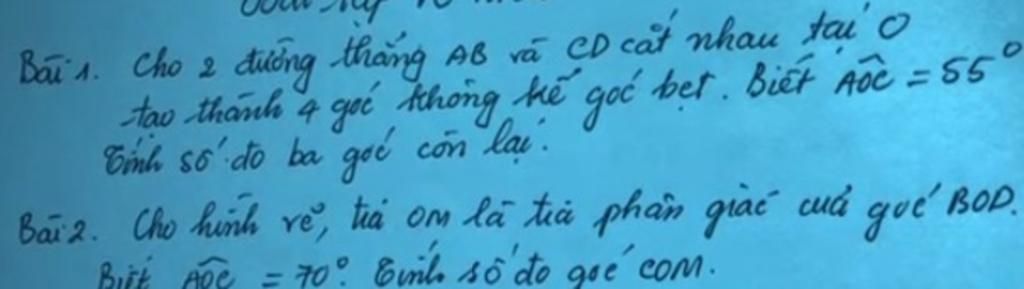 Bài 1. Cho 2 đường thẳng AB và CD cắt nhau tại O
tạo thành 4 góc không kể góc bẹt. Biết AÔC = 55°
Tính số đo ba góc còn lại.
Bài 2. Cho hình vẽ, tia OM là tia phân giác của góc BOD.
Biết AÔC = 70°. Tính số đo góc COM.